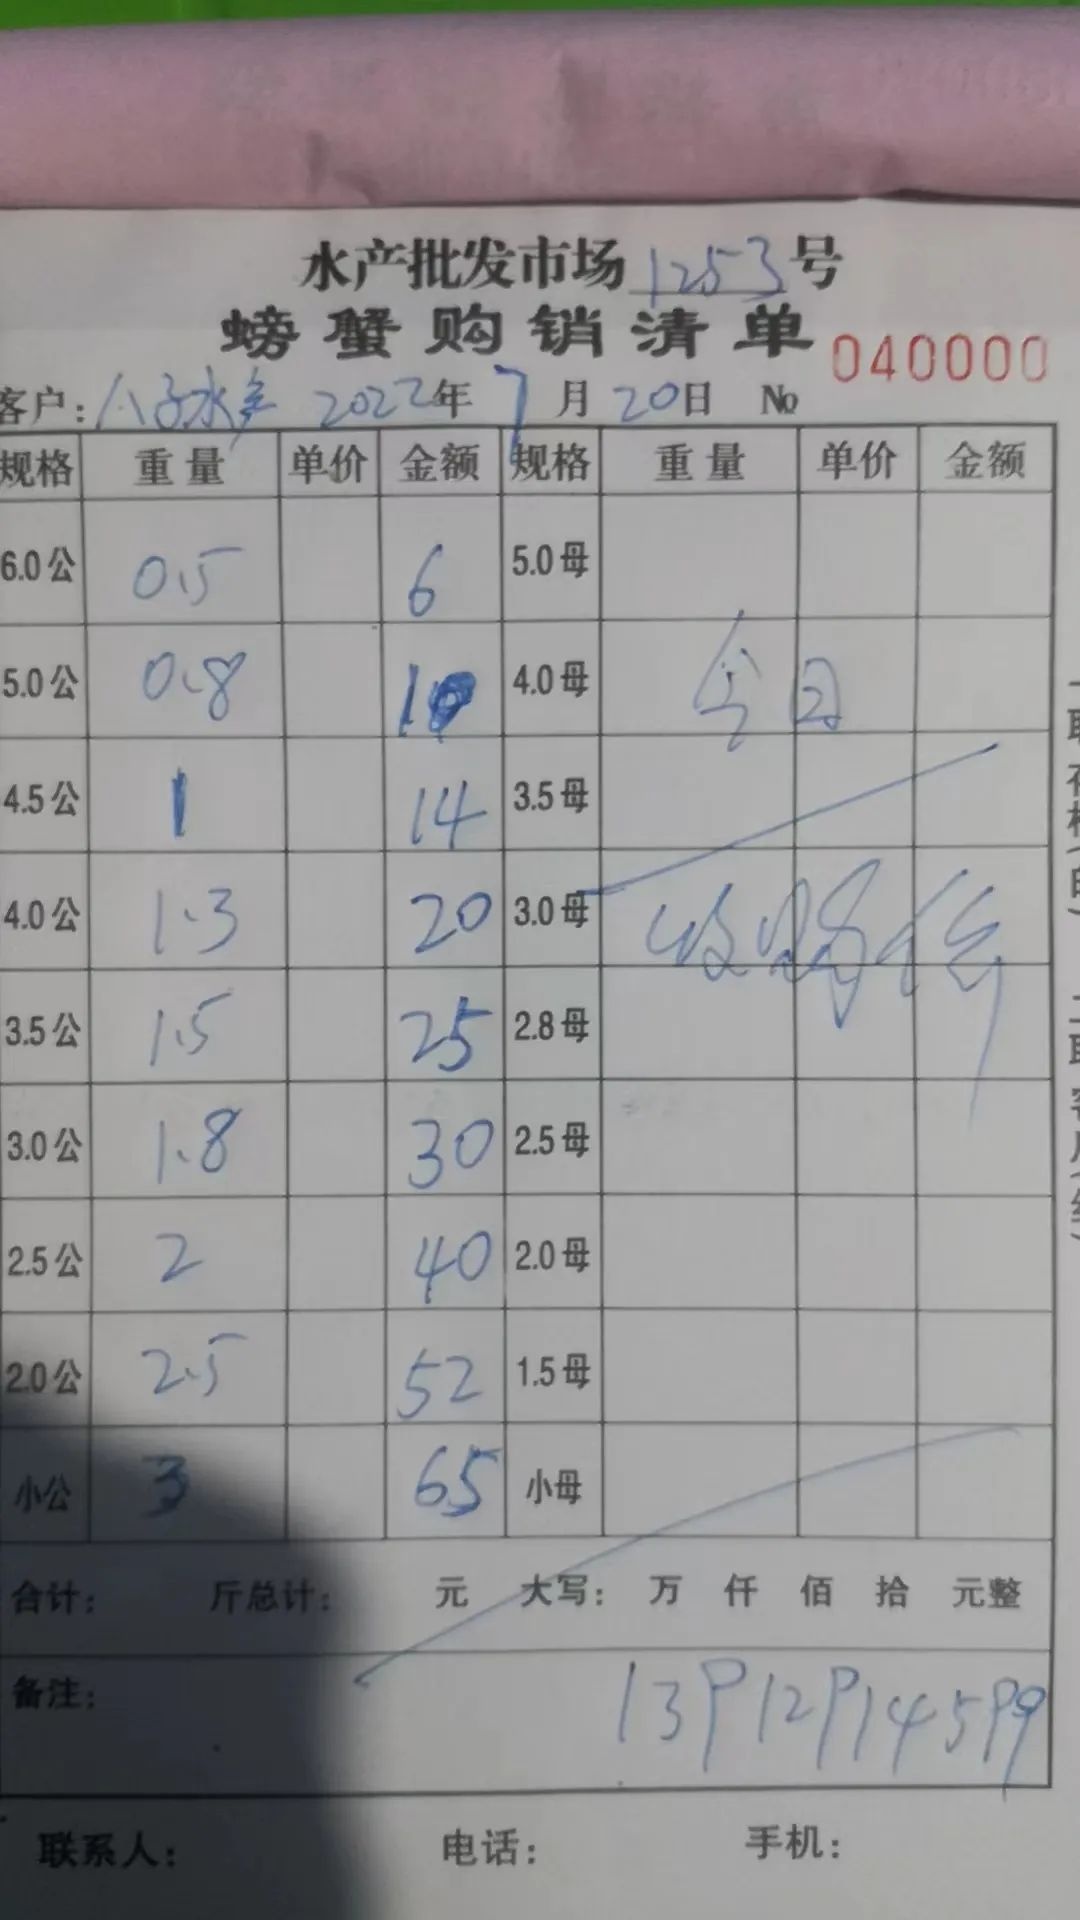 水产批发市场 1253 号
螃蟹购销清单 040000
客户: 八子水乡 2022年 7月 20日 №
规格 重量 单价 金额 规格 重量 单价 金额
6.0公 0.5 6 5.0母
5.0公 0.8 10 4.0母 今日
4.5公 1 14 3.5母
4.0公 1.3 20 3.0母 收购价
3.5公 1.5 25 2.8母
3.0公 1.8 30 2.5母
2.5公 2 40 2.0母
2.0公 2.5 52 1.5母
小公 3 65 小母
合计: 斤总计: 元 大写: 万 仟 佰 拾 元整
备注: 13912914599
联系人: 电话: 手机: